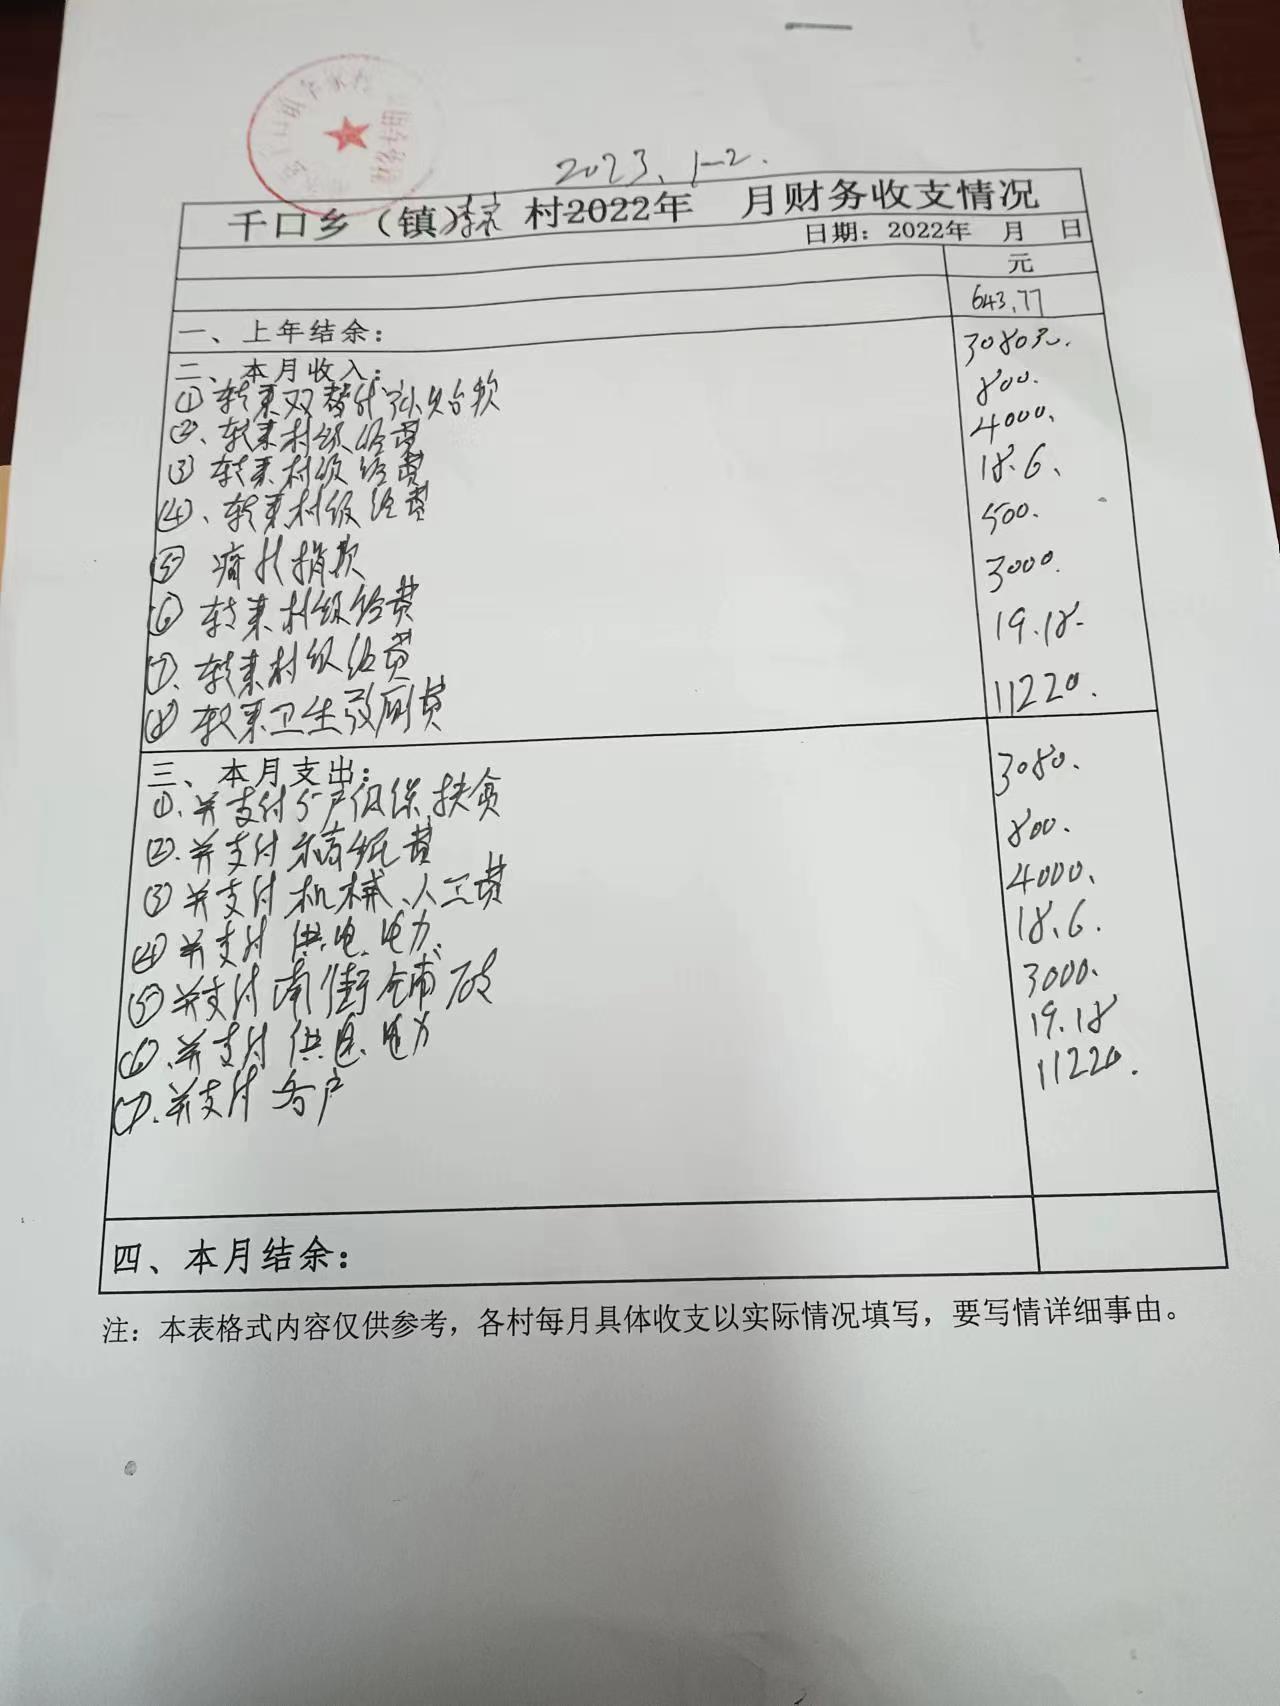 2023.1-2.
千口乡（镇）李家村2022年 月财务收支情况
日期：2022年 月 日
元
一、上年结余： 643.77
二、本月收入：
①转来双替代 款
800.
②、转来村级经费 4000.
③转来村级经费 18.6.
④、转来村级经费 500.
⑤ 捐款 3000.
⑥ 转来村级经费 19.18.
⑦、转来村级经费 11220.
⑧转来卫生改厕费
三、本月支出： 3080.
①、并支付5户低保扶贫 800.
②、并支付 费 4000.
③并支付机械、人工费 18.6.
④并支付供电、电力 3000.
⑤并支付南街铺 19.18
⑥、并支付供电、电力 11220.
⑦、并支付各户
四、本月结余：
注：本表格式内容仅供参考，各村每月具体收支以实际情况填写，要写情详细事由。